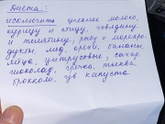 Диета:
исключить цельное молоко,
курицу и птицу, говядину
и телятину, рыбу и морепро-
дукты, мёд, орехи, бананы,
яйца, цитрусовые, сахар,
шоколад, гречка, тыква,
брокколи, цв. капуста